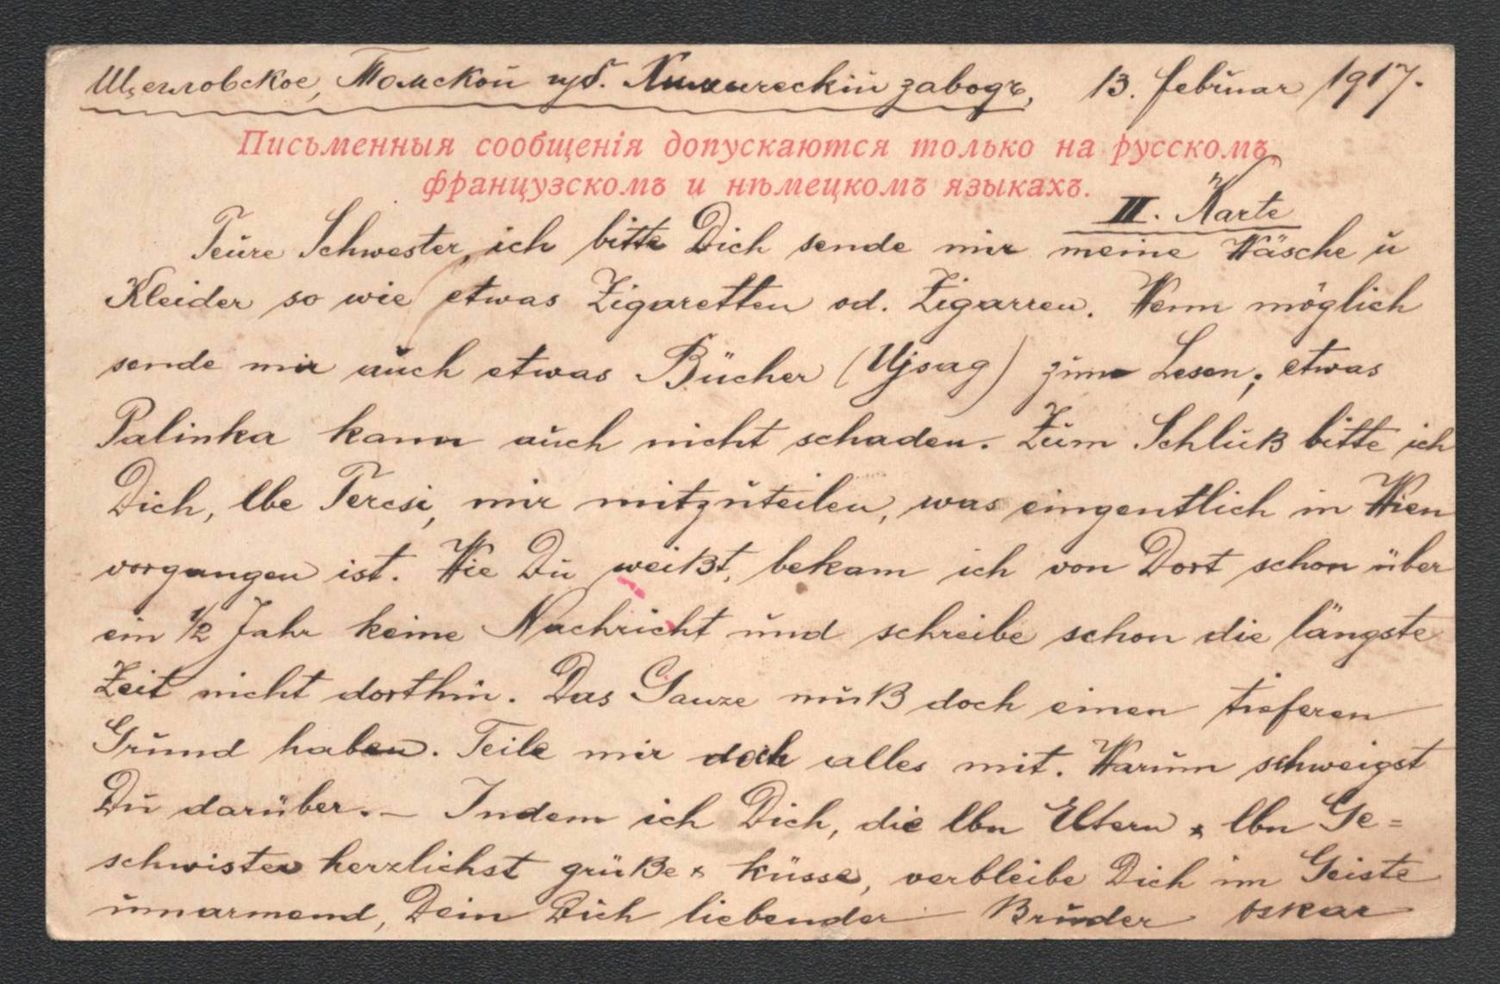 Щегловское, Томской губ. Химическій заводъ, 13. februar 1917.
Письменныя сообщенія допускаются только на русскомъ
французскомъ и нѣмецкомъ языкахъ.
II. Karte
Teure Schwester, ich bitte Dich sende mir meine Wäsche u
Kleider so wie etwas Zigaretten od. Zigarren. Wenn möglich
sende mir auch etwas Bücher (Ujsag) zum Lesen; etwas
Palinka kann auch nicht schaden. Zum Schluß bitte ich
Dich, lbe Teresi, mir mitzuteilen, was eingentlich in Wien
vorgangen ist. Wie Du weißt, bekam ich von Dort schon über
ein 1/2 Jahr keine Nachricht und schreibe schon die längste
Zeit nicht dorthin. Das Ganze muß doch einen tieferen
Grund haben. Teile mir doch alles mit. Warum schweigst
Du darüber. — Indem ich Dich, die lbn Eltern & lbn Ge=
schwister herzlichst grüße & küsse, verbleibe Dich im Geiste
umarmend, Dein Dich liebender Bruder Oskar